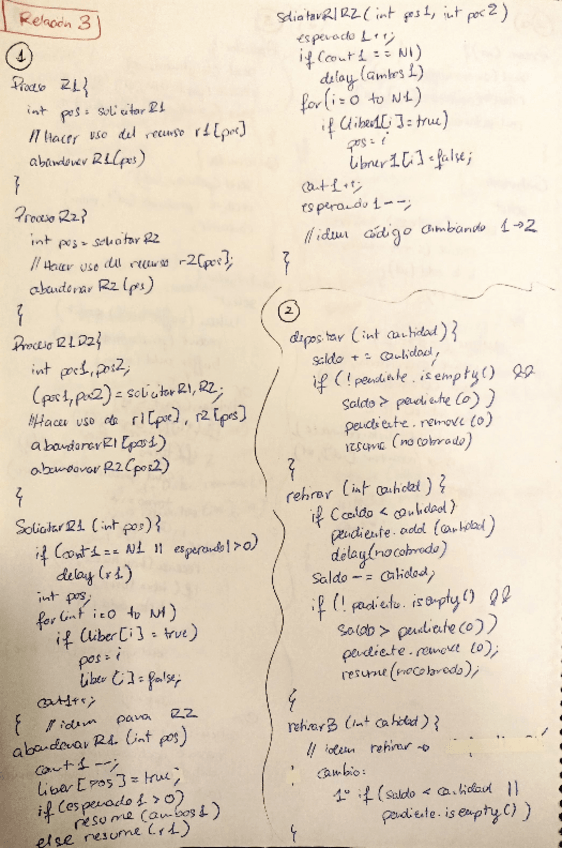 Relación 3
1
Proceso R1{
int pos = solicitar R1
// Hacer uso del recurso r1[pos]
abandonar R1(pos)
}
Proceso R2{
int pos = solicitar R2
// Hacer uso del recurso r2[pos];
abandonar R2(pos)
}
Proceso R1R2{
int pos1, pos2;
(pos1, pos2) = solicitar R1, R2;
// Hacer uso de r1[pos], r2[pos]
abandonar R1[pos1)
abandonar R2(pos2)
}
Solicitar R1 (int pos){
if (cont1 == N1 || esperando1>0)
delay(r1)
int pos;
for(int i=0 to N1)
if (liber[i] = true)
pos = i
liber[i] = false;
cont1++;
} // idem para R2
abandonar R1 (int pos)
cont1--;
liber[pos] = true;
if (esperado1 > 0)
resume (ambos1)
else resume (r1)
Solicitar R1R2 (int pos1, int pos2)
esperado1++;
if (cont1 == N1)
delay (ambos1)
for (i=0 to N1)
if (liber1[i] = true)
pos = i
librer1[i] = false;
cont1++;
esperando1--;
// idem código cambiando 1→2
}
2
depositar (int cantidad){
saldo += cantidad;
if (!pendiente.isempty() &&
saldo > pendiente(0))
pendiente.remove(0)
resume (nocobrado)
}
retirar (int cantidad){
if (saldo < cantidad)
pendiente.add(cantidad)
delay(nocobrado)
saldo -= catidad;
if (!pendiente.isempty() &&
saldo > pendiente(0))
pendiente.remove(0);
resume(nocobrado);
}
retirarB (int catidad){
// idem retirar →
cambio:
1º if (saldo < cantidad ||
pendiente.isempty())
}